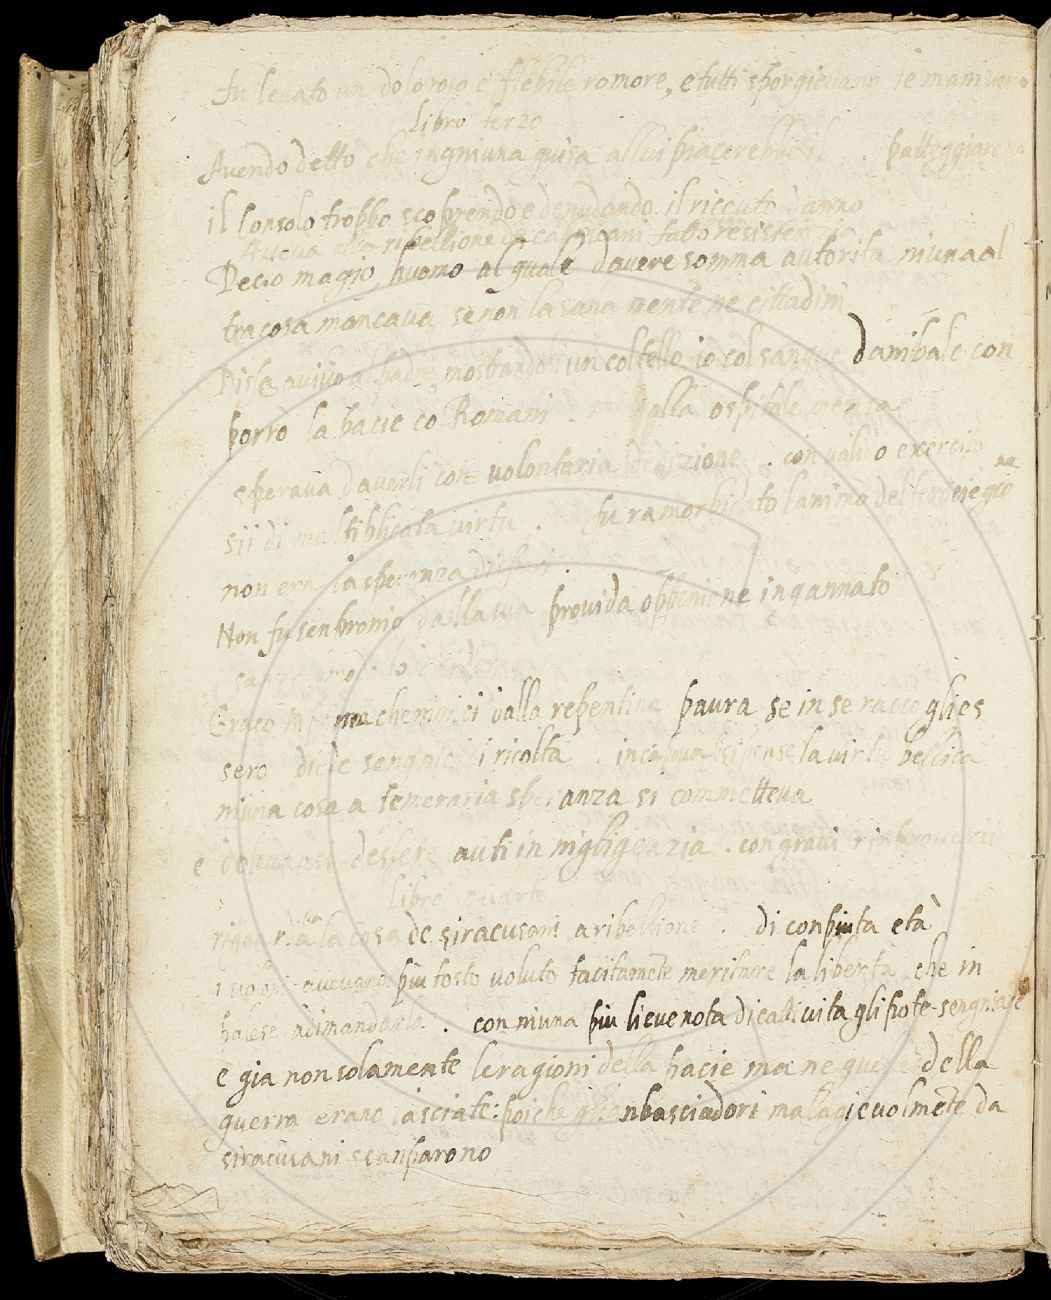 fu levato un doloroso e flebile romore, e tutti sporgievano le mani verso
Libro terzo
Avendo detto che in gniuna guisa allui piacerebbe patteggiare
il Consolo troppo scoprendo e denudando il riceuto danno
Aveva alla ribellione de capovani fatto resistenza
Decio magio, huomo al quale davere somma autorita niuna al
tra cosa mancava se non la sana mente ne cittadini
Disse a vivo al padre mostrandoli un coltello io col sangue danibale con
porro la pacie co Romani . alla ospitale mensa
sperava daverli con volontaria dedizione . con vali o exercito
sii di multiplicata virtu . fu ramorbidato lanimo del feroce gio
non era la speranza
Non fu senpronio dalla sua provida oppenione ingannato
Erano in prima che nimici dalla repentina paura se in se raccoglies
sero diede sengnio i ricolta . in capova si spense la virtu bellica
niuna cosa a temeraria speranza si commetteva
e dolevansi dessere auti in nigligenzia . con gravi rinproveri
Libro quarto
la cosa de siracusani a ribellione . di conpiuta età
avevano piu tosto voluto tacitamēte meritare la liberta che in
palese adimandarla . con niuna piu lieve nota di cattivita gli pote sengniare
e gia non solamente le ragioni della pacie ma ne quelle della
guerra erano lasciate: poiche gli anbasciadori malagievolmēte da
siracusani scanparono